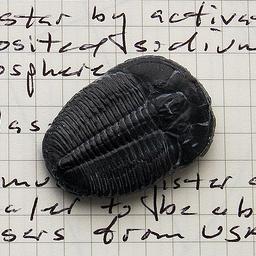 star by activa
osited sodium
osphere
las
ister
aler to be ab
sers from USA